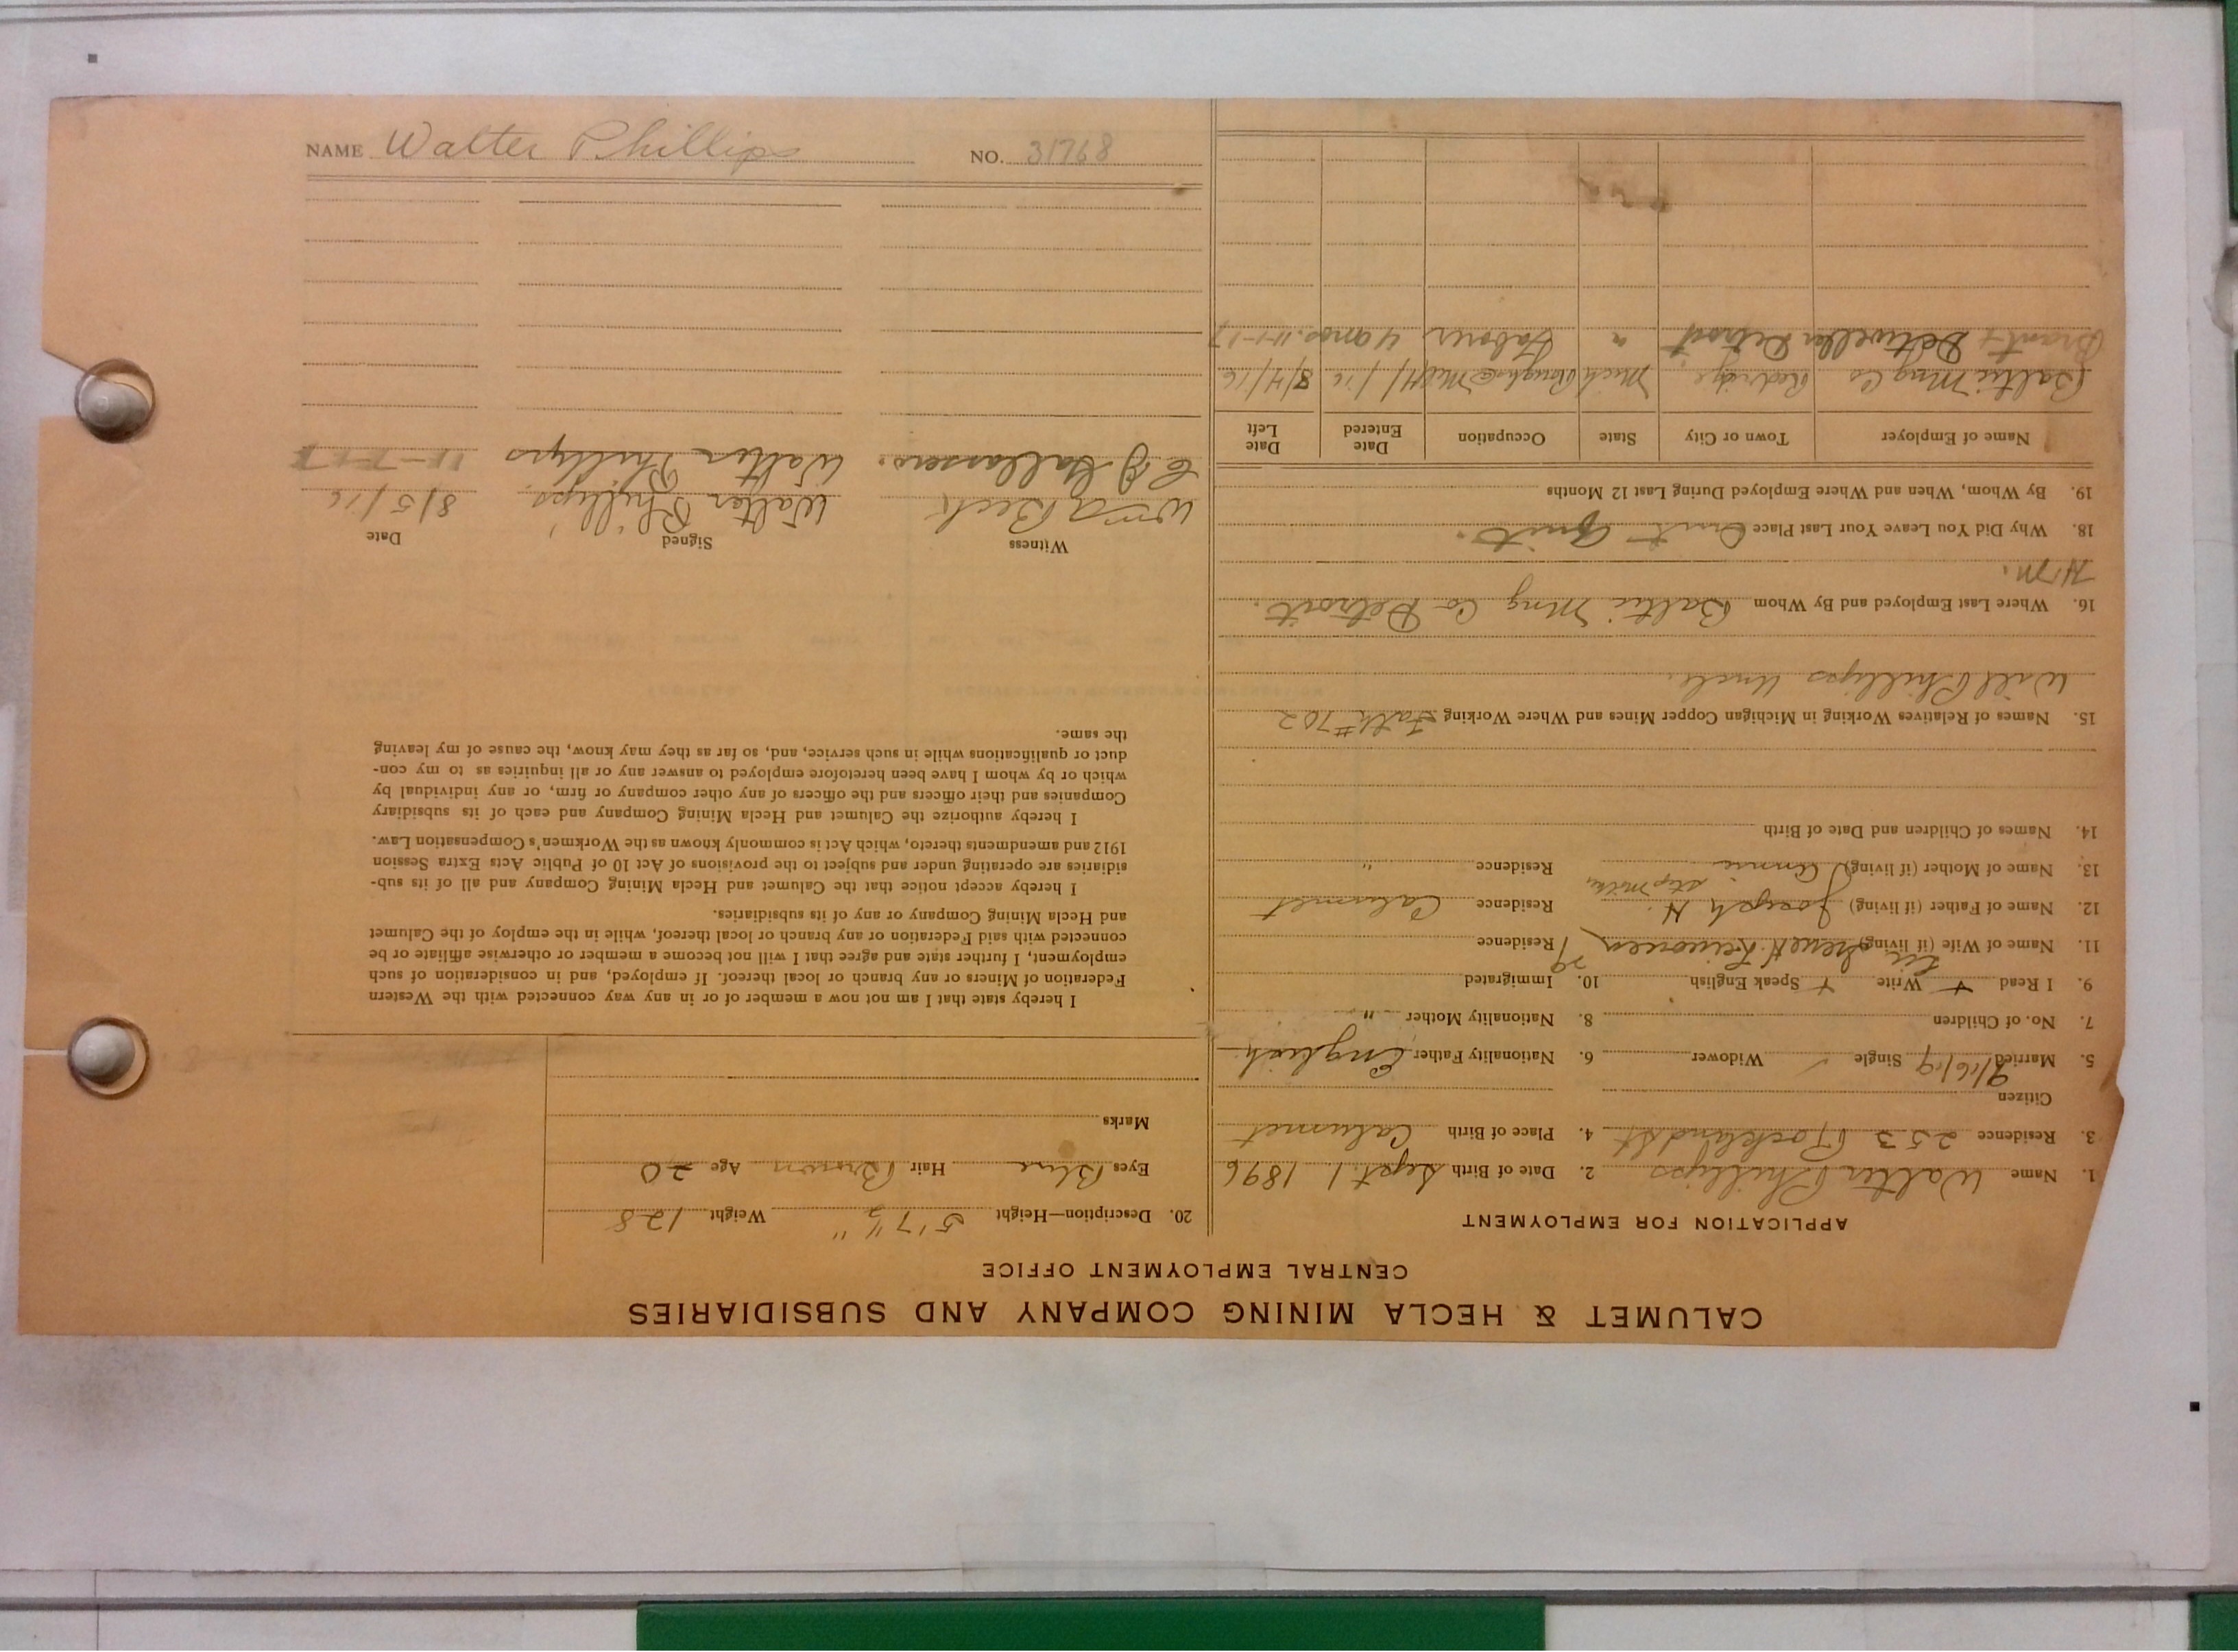 CALUMET & HECLA MINING COMPANY AND SUBSIDIARIES
CENTRAL EMPLOYMENT OFFICE
APPLICATION FOR EMPLOYMENT
1. Name Walter Phillips 2. Date of Birth Sept. 1 1896
3. Residence 253 Rockland St 4. Place of Birth Calumet
Citizen
5. Married 9/16/19 Single Widower 6. Nationality Father English
7. No. of Children 8. Nationality Mother "
9. I Read Write Speak English 10. Immigrated
11. Name of Wife (if living) Residence
12. Name of Father (if living) Joseph H. Residence Calumet
step mother
13. Name of Mother (if living) Annie Residence "
14. Names of Children and Date of Birth
15. Names of Relatives Working in Michigan Copper Mines and Where Working Fath #702
Will Phillips Uncle.
16. Where Last Employed and By Whom Baltic Mng Co Detroit.
H.M.
18. Why Did You Leave Your Last Place Quit.
19. By Whom, When and Where Employed During Last 12 Months
Name of Employer Town or City State Occupation Date Entered Date Left
Baltic Mng Co Redridge Mich 8/4/16
Detroit " Laborer 4 mos. 11-1-17
20. Description—Height 5' 7 1/2" Weight 128
Eyes Blue Hair Brown Age 20
Marks
I hereby state that I am not now a member of or in any way connected with the Western
Federation of Miners or any branch or local thereof. If employed, and in consideration of such
employment, I further state and agree that I will not become a member or otherwise affiliate or be
connected with said Federation or any branch or local thereof, while in the employ of the Calumet
and Hecla Mining Company or any of its subsidiaries.
I hereby accept notice that the Calumet and Hecla Mining Company and all of its sub-
sidiaries are operating under and subject to the provisions of Act 10 of Public Acts Extra Session
1912 and amendments thereto, which Act is commonly known as the Workmen's Compensation Law.
I hereby authorize the Calumet and Hecla Mining Company and each of its subsidiary
Companies and their officers and the officers of any other company or firm, or any individual by
which or by whom I have been heretofore employed to answer any or all inquiries as to my con-
duct or qualifications while in such service, and, so far as they may know, the cause of my leaving
the same.
Witness Signed Date
Wm A Beck Walter Phillips 8/5/16
Walter Phillips 11-7-17
NAME Walter Phillips NO. 31768